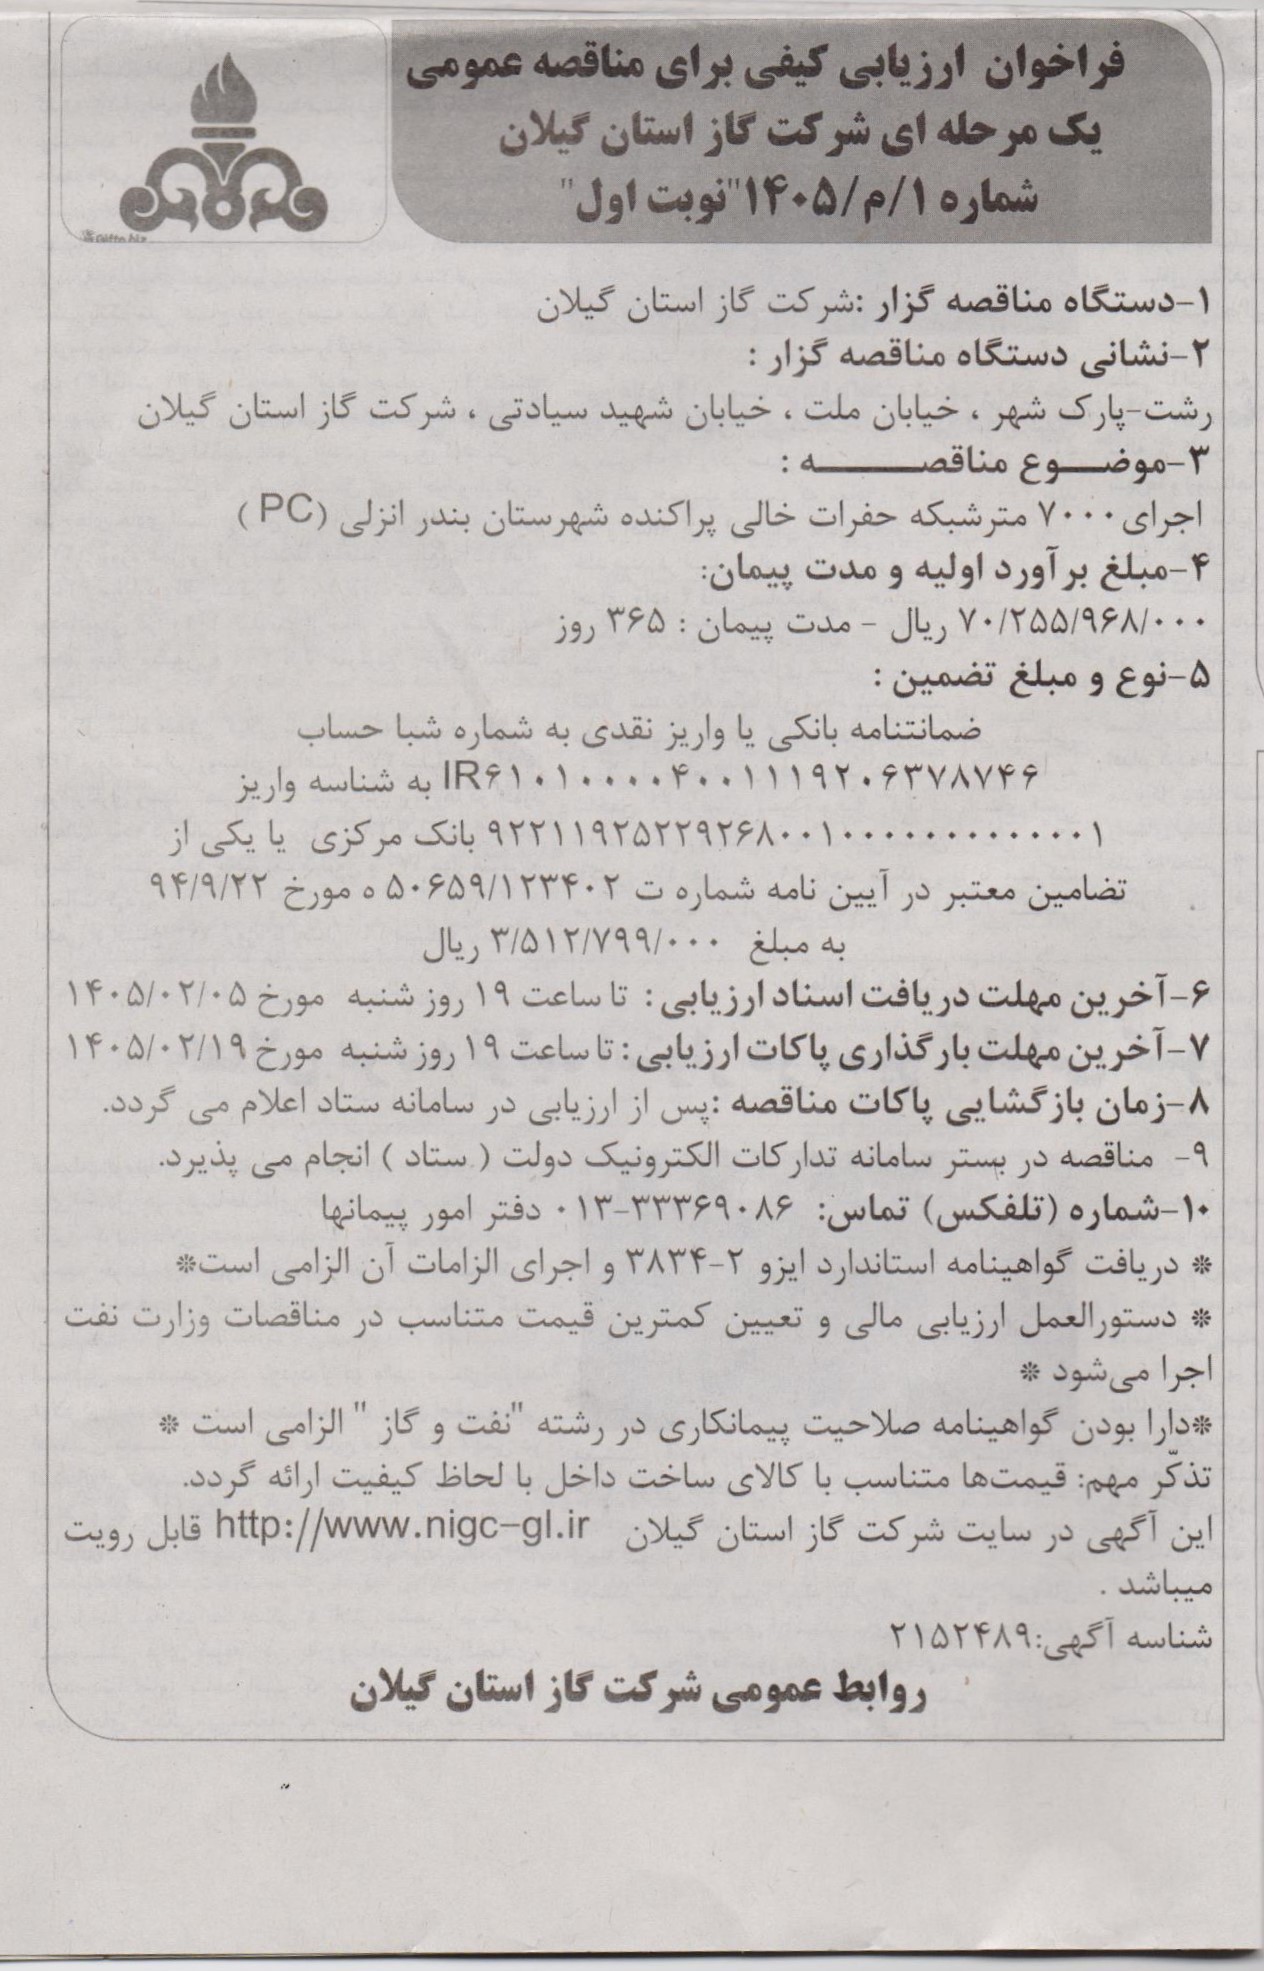 فراخوان ارزیابی کیفی برای مناقصه عمومی
یک مرحله ای شرکت گاز استان گیلان
شماره ۱/م/۱۴۰۵"نوبت اول"
۱-دستگاه مناقصه گزار :شرکت گاز استان گیلان
۲-نشانی دستگاه مناقصه گزار :
رشت-پارک شهر ، خیابان ملت ، خیابان شهید سیادتی ، شرکت گاز استان گیلان
۳-موضـــوع مناقصـــــــه :
اجرای ۷۰۰۰ مترشبکه حفرات خالی پراکنده شهرستان بندر انزلی (PC )
۴-مبلغ برآورد اولیه و مدت پیمان:
۷۰/۲۵۵/۹۶۸/۰۰۰ ریال - مدت پیمان : ۳۶۵ روز
۵-نوع و مبلغ تضمین :
ضمانتنامه بانکی یا واریز نقدی به شماره شبا حساب
IR۶۱۰۱۰۰۰۰۴۰۰۱۱۱۹۲۰۶۳۷۸۷۴۶ به شناسه واریز
۹۲۲۱۱۹۲۵۲۲۹۲۶۸۰۰۱۰۰۰۰۰۰۰۰۰۰۰۰۱ بانک مرکزی یا یکی از
تضامین معتبر در آیین نامه شماره ت ۵۰۶۵۹/۱۲۳۴۰۲ ه مورخ ۹۴/۹/۲۲
به مبلغ ۳/۵۱۲/۷۹۹/۰۰۰ ریال
۶-آخرین مهلت دریافت اسناد ارزیابی : تا ساعت ۱۹ روز شنبه مورخ ۱۴۰۵/۰۲/۰۵
۷-آخرین مهلت بارگذاری پاکات ارزیابی : تا ساعت ۱۹ روز شنبه مورخ ۱۴۰۵/۰۲/۱۹
۸-زمان بازگشایی پاکات مناقصه :پس از ارزیابی در سامانه ستاد اعلام می گردد.
۹- مناقصه در بستر سامانه تدارکات الکترونیک دولت ( ستاد ) انجام می پذیرد.
۱۰-شماره (تلفکس) تماس: ۳۳۳۶۹۰۸۶-۰۱۳ دفتر امور پیمانها
* دریافت گواهینامه استاندارد ایزو ۲-۳۸۳۴ و اجرای الزامات آن الزامی است*
* دستورالعمل ارزیابی مالی و تعیین کمترین قیمت متناسب در مناقصات وزارت نفت
اجرا می‌شود *
*دارا بودن گواهینامه صلاحیت پیمانکاری در رشته "نفت و گاز " الزامی است *
تذکّر مهم: قیمت‌ها متناسب با کالای ساخت داخل با لحاظ کیفیت ارائه گردد.
این آگهی در سایت شرکت گاز استان گیلان http://www.nigc-gl.ir قابل رویت
میباشد .
شناسه آگهی:۲۱۵۲۴۸۹
روابط عمومی شرکت گاز استان گیلان